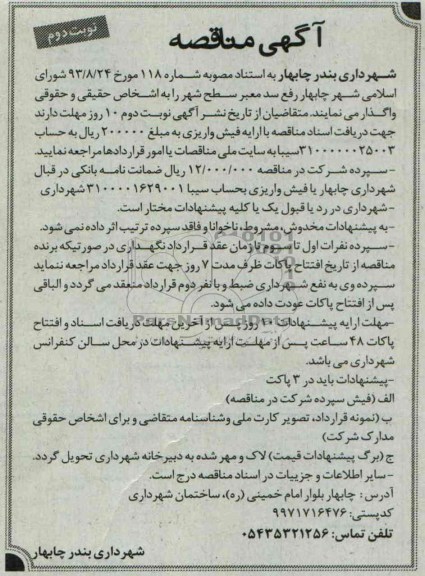 نوبت دوم
آگهی مناقصه
شهرداری بندر چابهار به استناد مصوبه شماره ۱۱۸ مورخ ۹۳/۸/۲۴ شورای
اسلامی شهر چابهار رفع سد معبر سطح شهر را به اشخاص حقیقی و حقوقی
واگذار می نمایند. متقاضیان از تاریخ نشر آگهی نوبت دوم ۱۰ روز مهلت دارند
جهت دریافت اسناد مناقصه با ارایه فیش واریزی به مبلغ ۲۰۰۰۰۰ ریال به حساب
۳۱۰۰۰۰۰۰۲۵۰۰۳ سیبا به سایت ملی مناقصات یا امور قراردادها مراجعه نمایید.
-سپرده شرکت در مناقصه ۱۲/۰۰۰/۰۰۰ ریال ضمانت نامه بانکی در قبال
شهرداری چابهار یا فیش واریزی بحساب سیبا ۳۱۰۰۰۰۱۶۲۹۰۰۱ شهرداری
-شهرداری در رد یا قبول یک یا کلیه پیشنهادات مختار است.
-به پیشنهادات مخدوش، مشروط، ناخوانا و فاقد سپرده ترتیب اثر داده نمی شود.
-سپرده نفرات اول تا سوم تا زمان عقد قرارداد نگهداری در صورتیکه برنده
مناقصه از تاریخ افتتاح پاکات ظرف مدت ۷ روز جهت عقد قرارداد مراجعه ننماید
سپرده وی به نفع شهرداری ضبط و با نفر دوم قرارداد منعقد می گردد و الباقی
پس از افتتاح پاکات عودت داده می شود.
-مهلت ارایه پیشنهادات ۱۰ روز پس از آخرین مهلت دریافت اسناد و افتتاح
پاکات ۴۸ ساعت پس از مهلت ارایه پیشنهادات در محل سالن کنفرانس
شهرداری می باشد.
-پیشنهادات باید در ۳ پاکت
الف (فیش سپرده شرکت در مناقصه)
ب (نمونه قرارداد، تصویر کارت ملی و شناسنامه متقاضی و برای اشخاص حقوقی
مدارک شرکت)
ج (برگ پیشنهادات قیمت) لاک و مهر شده به دبیرخانه شهرداری تحویل گردد.
-سایر اطلاعات و جزییات در اسناد مناقصه درج است.
آدرس: چابهار بلوار امام خمینی (ره)، ساختمان شهرداری
کدپستی: ۹۹۷۱۷۱۶۴۷۶
تلفن تماس: ۰۵۴۳۵۳۲۱۲۵۶
شهرداری بندر چابهار